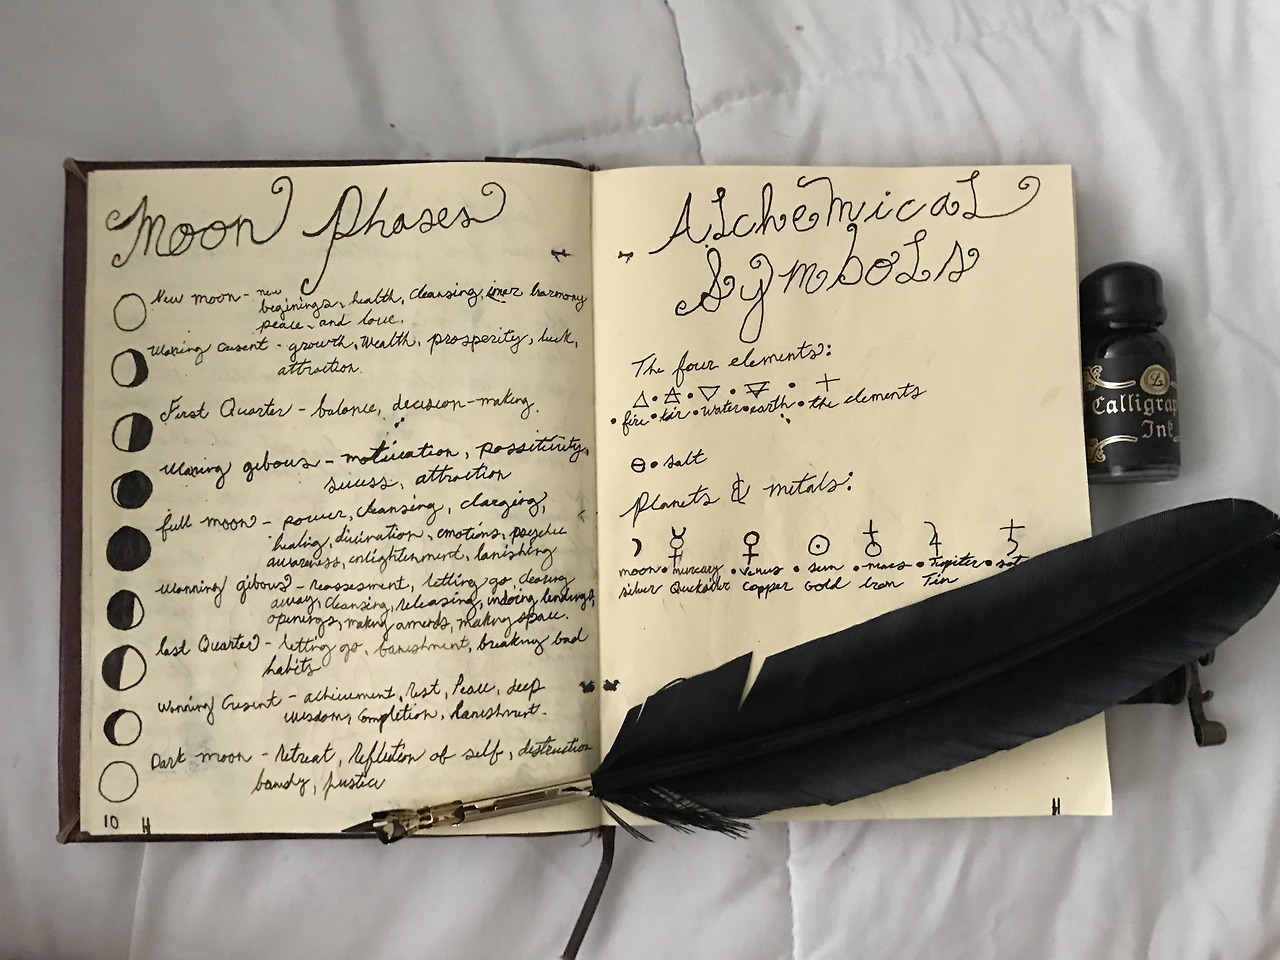 Moon Phases
New moon - new
beginings, health, cleansing, inner harmony
peace, and love.
Waxing cresent - growth, wealth, prosperity, luck,
attraction.
First Quarter - balance, decision-making.
Waxing gibous - motivation, possitivity,
sucess, attraction
full moon - power, cleansing, charging,
healing, divination, emotions, psychic
awareness, enlightenment, banishing
Wanning gibous - reassesment, letting go, clearing
away, cleansing, releasing, undoing bindings,
openings, making amends, making space.
last Quarter - letting go, banishment, breaking bad
habits
Wanning Cresent - achievment, rest, Peace, deep
wisdom, Completion, Banishment.
Dark moon - retreat, reflection of self, destruction
justice
10 H
Alchemical
Symbols
The four elements:
• fire • air • water • earth • the elements
• salt
Planets & metals:
moon • mercury • Venus • sun • mars • Jupiter
silver Quicksilver Copper Gold Iron Tin
H
Calligra
Ink